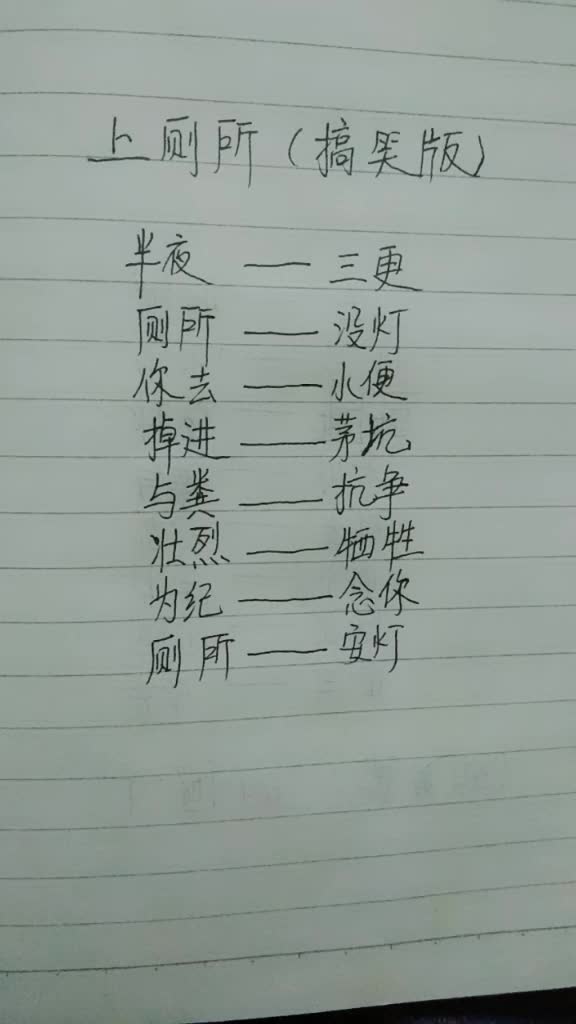 上厕所（搞笑版）
半夜——三更
厕所——没灯
你去——小便
掉进——茅坑
与粪——抗争
壮烈——牺牲
为纪——念你
厕所——安灯